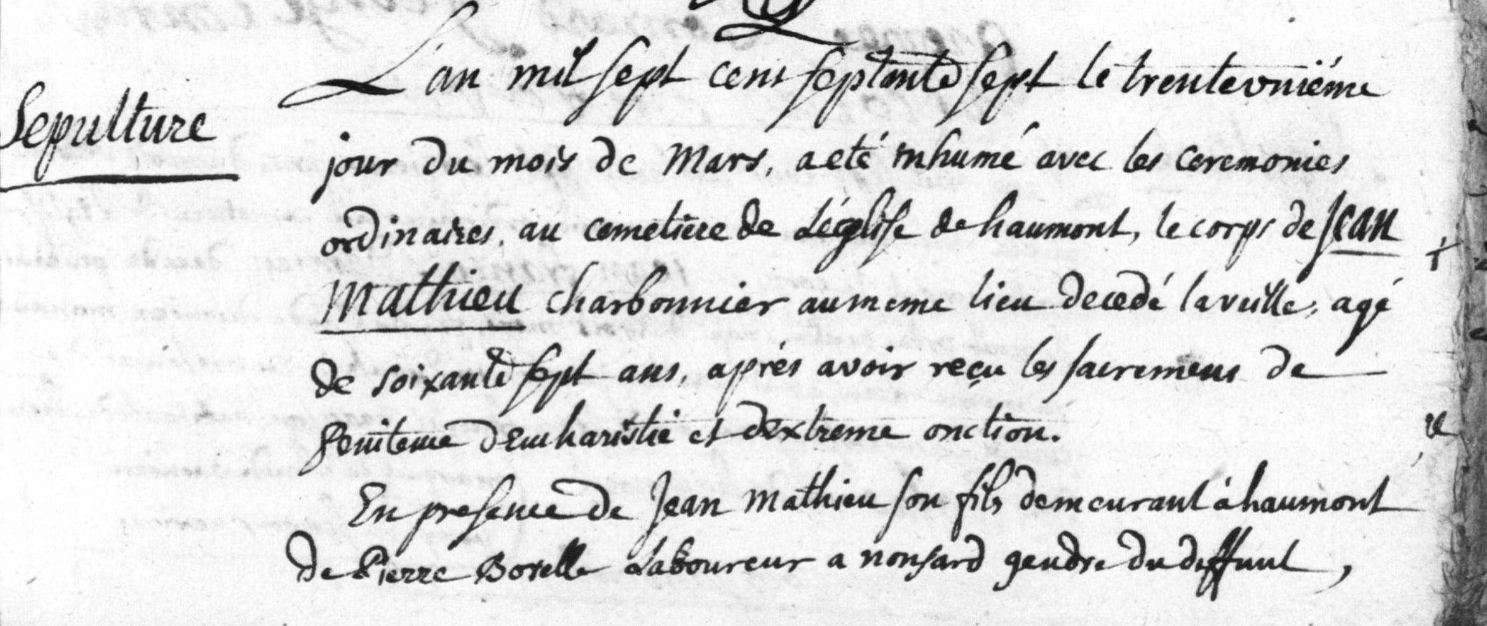 Sepulture
L'an mil sept cent septante sept le trentevniéme
jour du mois de Mars, a eté inhumé avec les ceremonies
ordinaires, au cemetiere de L'église de haumont, le corps de Jean
Mathieu charbonnier au meme lieu decedé la veille, agé
de soixante sept ans, aprés avoir reçu les sacremens de
penitence d'Eucharistie et d'Extreme onction.
En presence de Jean Mathieu son fils demeurant à haumont
de Pierre Borelle Laboureur a nonsard gendre du deffunt,